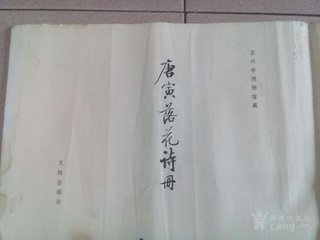 苏州市博物馆藏
唐寅落花诗册
文物出版社
cang.com